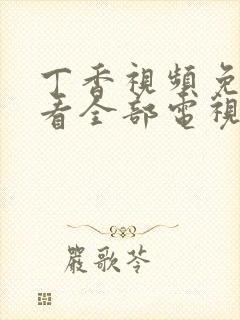 丁香視頻免
看全部電視
嚴歌苓